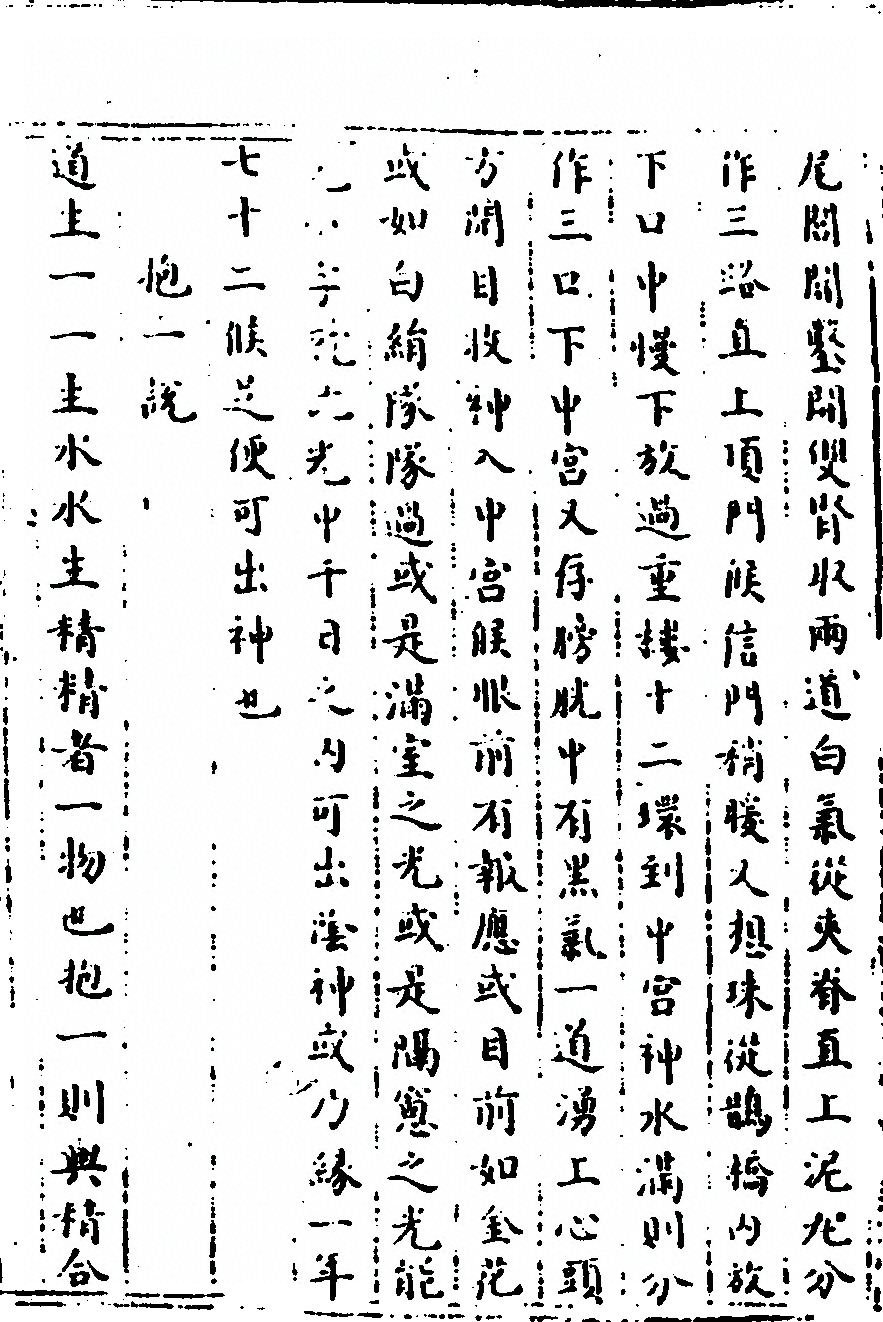 尾閭開鑿開雙腎收兩道白氣從夾脊直上泥丸分
作三路直上頂門候信門稍暖又想珠從鵲橋內放
下口中慢下放過重樓十二環到中宮神水滿則分
作三口下中宮又存膀胱中有黑氣一道湧上心頭
方閉目收神入中宮候眼前有報應或目前如金花
或如白絹隊隊過或是滿室之光或是隔窻之光能
光中千日之內可出陰神或乃緣一年
七十二候足便可出神也
抱一說
道生一一生水水生精精者一物也抱一則與精合